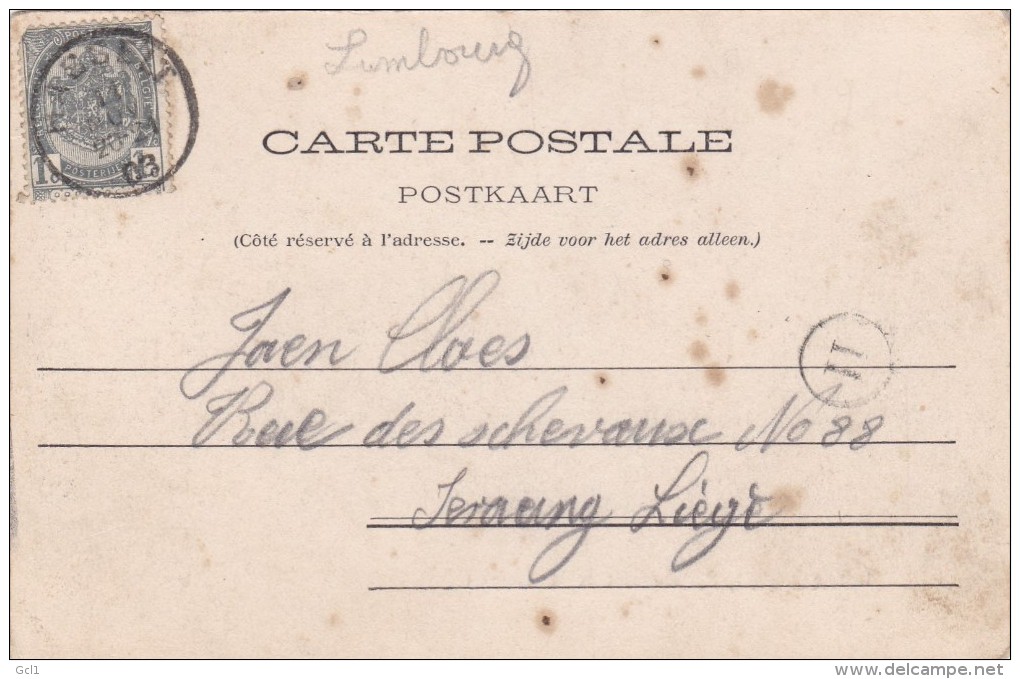 Limbourg
CARTE POSTALE
POSTKAART
(Côté réservé à l'adresse. -- Zijde voor het adres alleen.)
Jaen Claes
Rue des schevaux No 88
Seraeng Liège
11
POSTERIJEN
03
Gcl1
www.delcampe.net